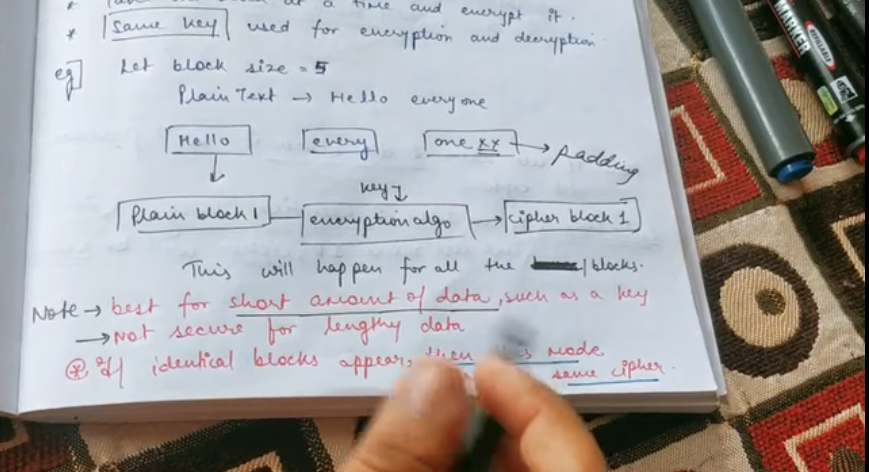 at a time and encrypt it.
* Same key used for encryption and decryption.
eg] Let block size = 5
Plain Text → Hello everyone
Hello every one xx → padding
key
Plain block 1 encryption algo → cipher block 1
This will happen for all the blocks.
Note → best for short amount of data, such as a key
→ Not secure for lengthy data
* If identical blocks appear, then this mode
same cipher.
MARKER